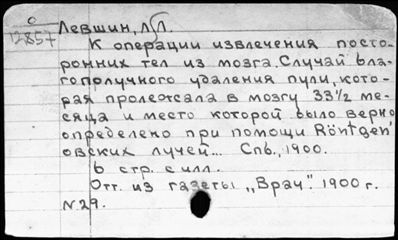 12857
Левшин, Л.Л.
К операции извлечения посто-
ронних тел из мозга. Случай бла-
гополучного удаления пули, кото-
рая пролежала в мозгу 33½ ме-
сяца и место которой было верно
определено при помощи Röntgen'
овских лучей... Спб., 1900.
6 стр. с илл.
Отт. из газеты „Врач". 1900 г.
N.29.